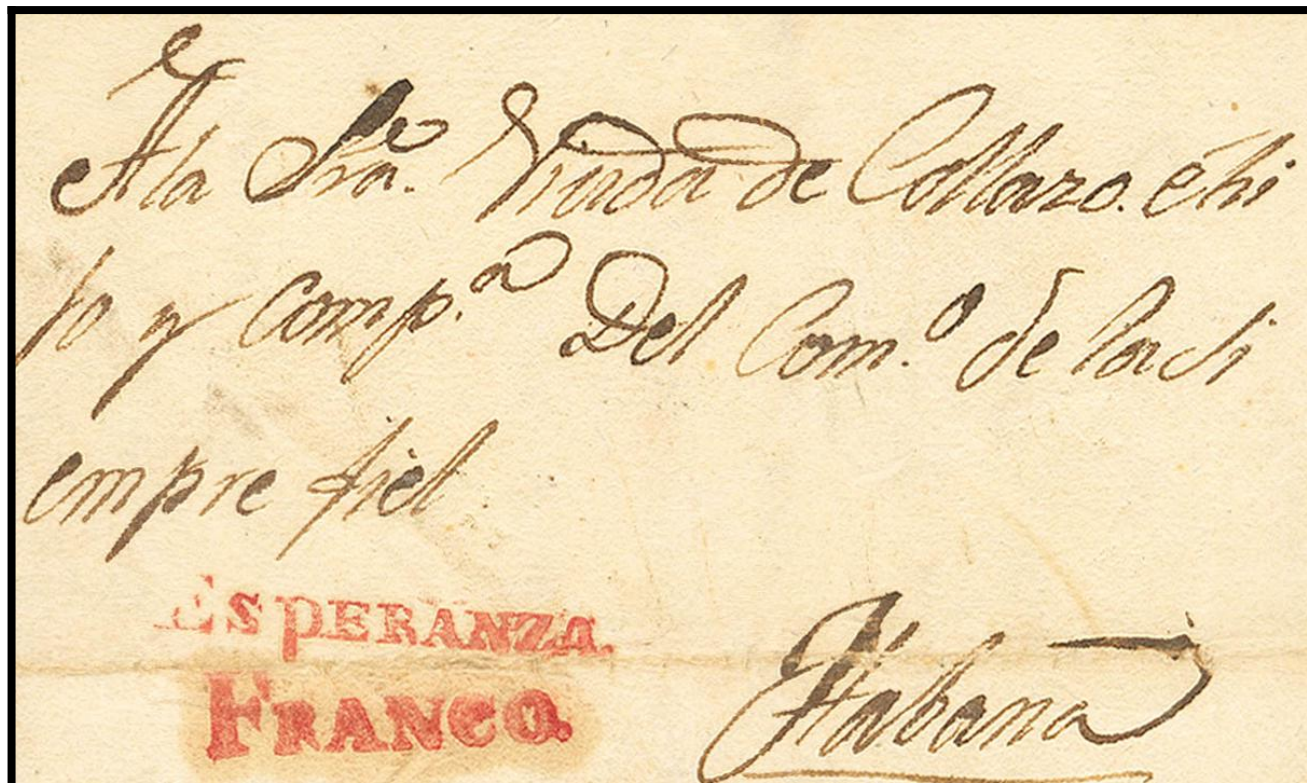 A la Sra. Viuda de Collazo. é hi
jo y Comp.a Del Com.o de la si
empre fiel
ESPERANZA.
FRANCO.
Habana